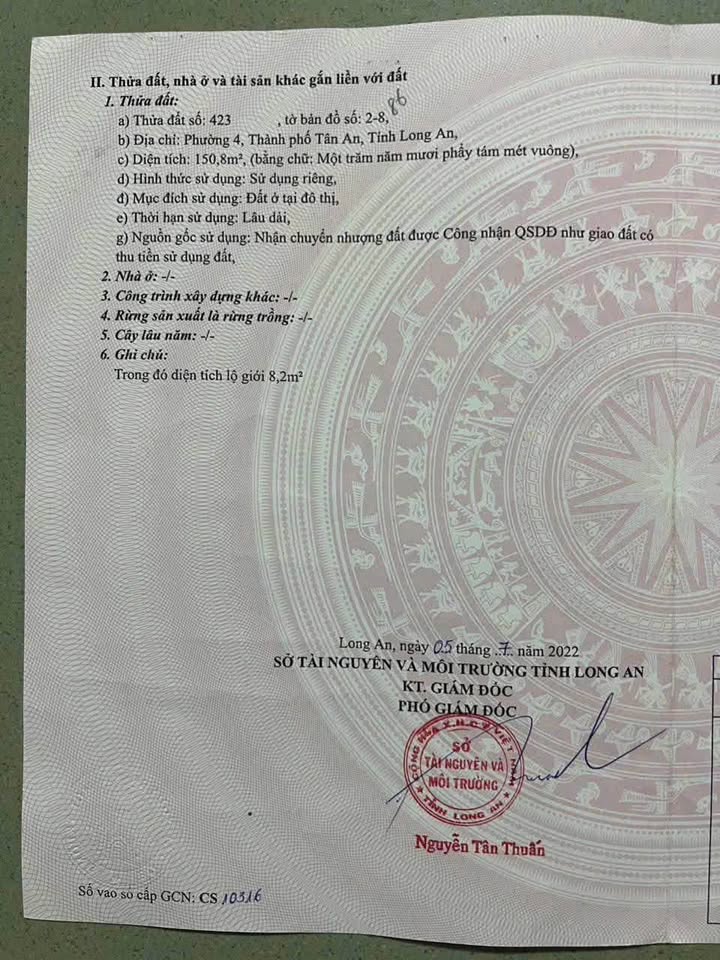 II. Thửa đất, nhà ở và tài sản khác gắn liền với đất
1. Thửa đất:
a) Thửa đất số: 423 , tờ bản đồ số: 2-8, 86
b) Địa chỉ: Phường 4, Thành phố Tân An, Tỉnh Long An,
c) Diện tích: 150,8m², (bằng chữ: Một trăm năm mươi phẩy tám mét vuông),
d) Hình thức sử dụng: Sử dụng riêng,
đ) Mục đích sử dụng: Đất ở tại đô thị,
e) Thời hạn sử dụng: Lâu dài,
g) Nguồn gốc sử dụng: Nhận chuyển nhượng đất được Công nhận QSDĐ như giao đất có
thu tiền sử dụng đất,
2. Nhà ở: -/-
3. Công trình xây dựng khác: -/-
4. Rừng sản xuất là rừng trồng: -/-
5. Cây lâu năm: -/-
6. Ghi chú:
Trong đó diện tích lộ giới 8,2m²
Long An, ngày 05 tháng .7. năm 2022
SỞ TÀI NGUYÊN VÀ MÔI TRƯỜNG TỈNH LONG AN
KT. GIÁM ĐỐC
PHÓ GIÁM ĐỐC
CỘNG HÒA X.H.C.N VIỆT NAM
SỞ
TÀI NGUYÊN VÀ
MÔI TRƯỜNG
★ TỈNH LONG AN ★
Nguyễn Tân Thuấn
Số vào sổ cấp GCN: CS 10316